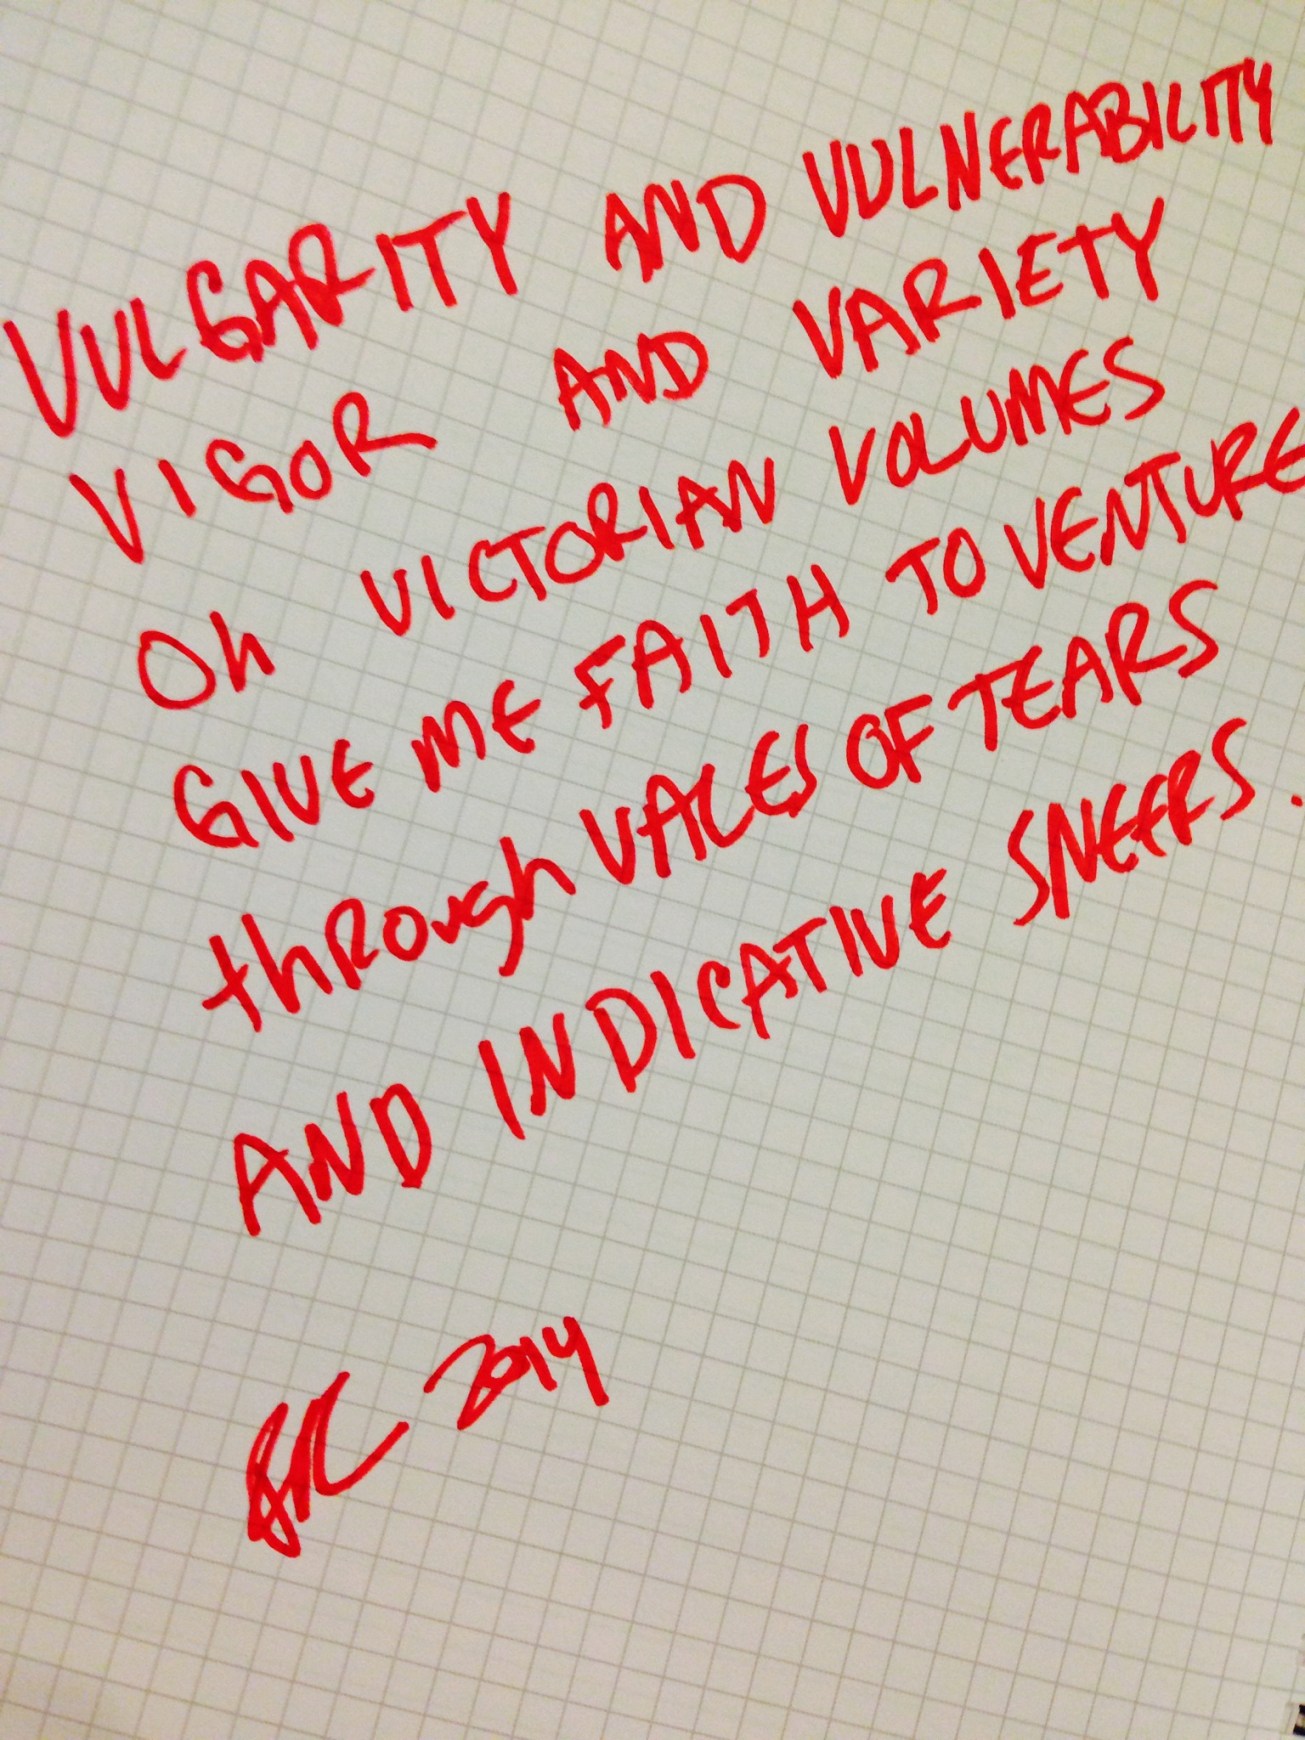 VULGARITY AND VULNERABILITY
VIGOR AND VARIETY
Oh VICTORIAN VOLUMES
GIVE ME FAITH TO VENTURE
thROugh VALES OF TEARS
AND INDICATIVE SNEERS.
2014